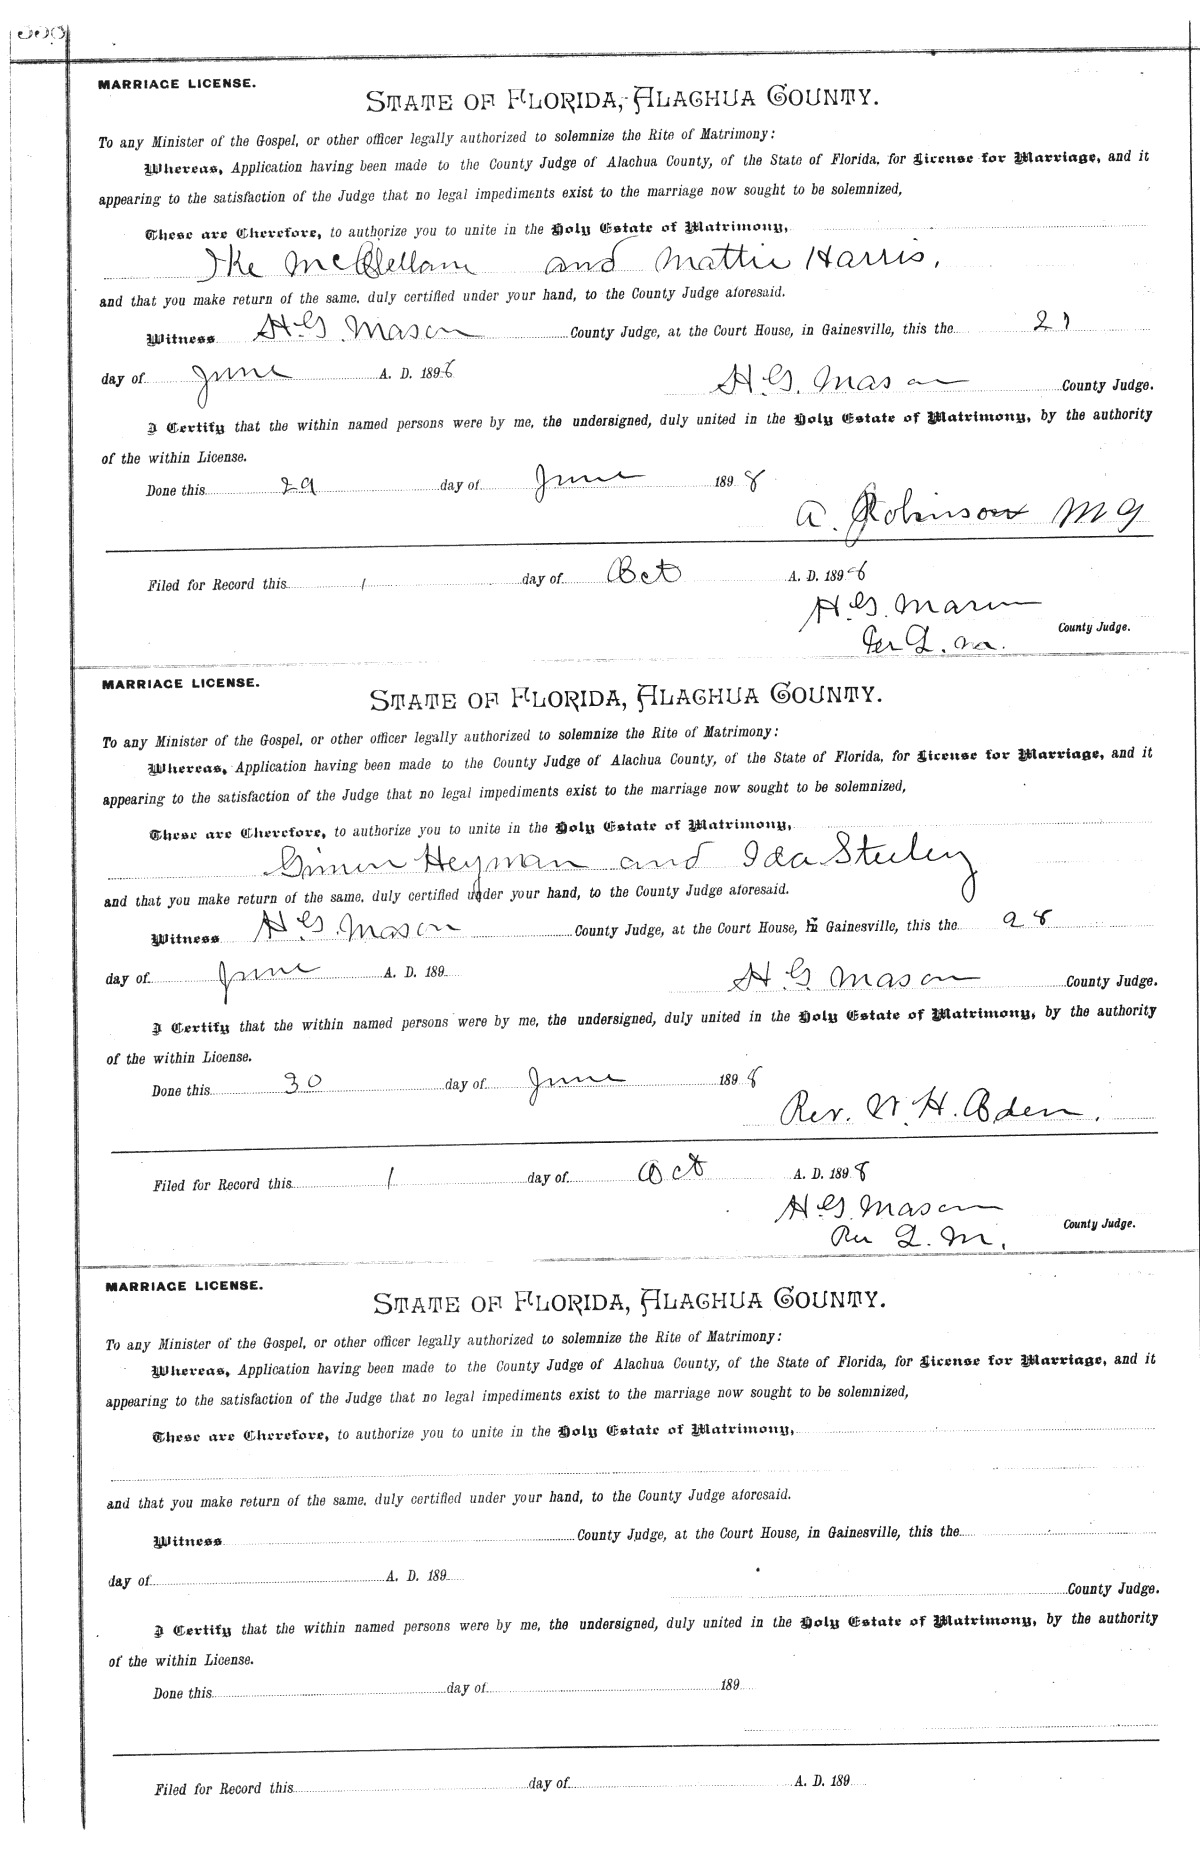 MARRIAGE LICENSE.
STATE OF FLORIDA, ALACHUA COUNTY.
To any Minister of the Gospel, or other officer legally authorized to solemnize the Rite of Matrimony:
Whereas, Application having been made to the County Judge of Alachua County, of the State of Florida, for License for Marriage, and it
appearing to the satisfaction of the Judge that no legal impediments exist to the marriage now sought to be solemnized,
These are Therefore, to authorize you to unite in the Holy Estate of Matrimony,
Ike McClellam and Mattie Harris,
and that you make return of the same, duly certified under your hand, to the County Judge aforesaid.
Witness H.G. Mason County Judge, at the Court House, in Gainesville, this the 21
day of June A. D. 1898
H.G. Mason County Judge.
I Certify that the within named persons were by me, the undersigned, duly united in the Holy Estate of Matrimony, by the authority
of the within License.
Done this 29 day of June 1898
A. Robinson M G
Filed for Record this 1 day of Oct A. D. 1898
H.G. Mason
County Judge.
Per L. M.
MARRIAGE LICENSE.
STATE OF FLORIDA, ALACHUA COUNTY.
To any Minister of the Gospel, or other officer legally authorized to solemnize the Rite of Matrimony:
Whereas, Application having been made to the County Judge of Alachua County, of the State of Florida, for License for Marriage, and it
appearing to the satisfaction of the Judge that no legal impediments exist to the marriage now sought to be solemnized,
These are Therefore, to authorize you to unite in the Holy Estate of Matrimony,
Simon Heyman and Ida Steeley
and that you make return of the same, duly certified under your hand, to the County Judge aforesaid.
Witness H G. Mason County Judge, at the Court House, in Gainesville, this the 28
day of June A. D. 189
H. G. Mason County Judge.
I Certify that the within named persons were by me, the undersigned, duly united in the Holy Estate of Matrimony, by the authority
of the within License.
Done this 30 day of June 1898
Rev. W. H. Oden.
Filed for Record this 1 day of Oct A. D. 1898
H.G. Mason
County Judge.
Per L. M.
MARRIAGE LICENSE.
STATE OF FLORIDA, ALACHUA COUNTY.
To any Minister of the Gospel, or other officer legally authorized to solemnize the Rite of Matrimony:
Whereas, Application having been made to the County Judge of Alachua County, of the State of Florida, for License for Marriage, and it
appearing to the satisfaction of the Judge that no legal impediments exist to the marriage now sought to be solemnized,
These are Therefore, to authorize you to unite in the Holy Estate of Matrimony,
and that you make return of the same, duly certified under your hand, to the County Judge aforesaid.
Witness County Judge, at the Court House, in Gainesville, this the
day of A. D. 189
County Judge.
I Certify that the within named persons were by me, the undersigned, duly united in the Holy Estate of Matrimony, by the authority
of the within License.
Done this day of 189
Filed for Record this day of A. D. 189